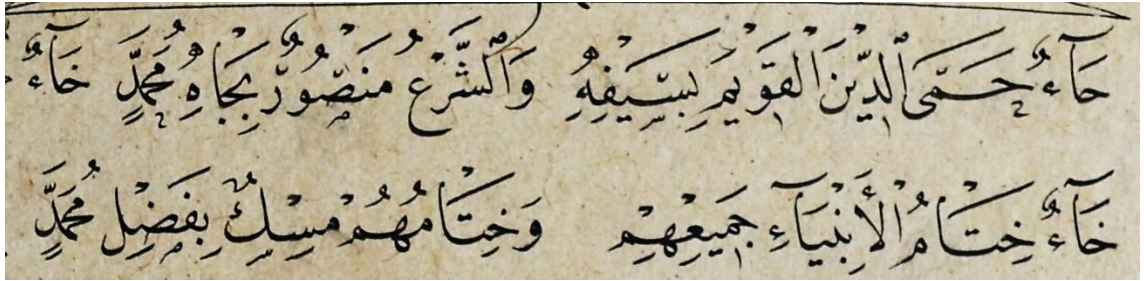 حَآءٌ حَمَى ٱلدِّينَ ٱلْقَوِيْمَ بِسَيْفِهِ وَٱلشَّرْعُ مَنْصُورٌ بِجَاهِ مُحَمَّدٍ خَآءٌ
خَآءٌ خِتَامُ الْأَنْبِيَآءِ جَمِيْعِهِمْ وَخِتَامُهُمْ مِسْكٌ بِفَضْلِ مُحَمَّدٍ